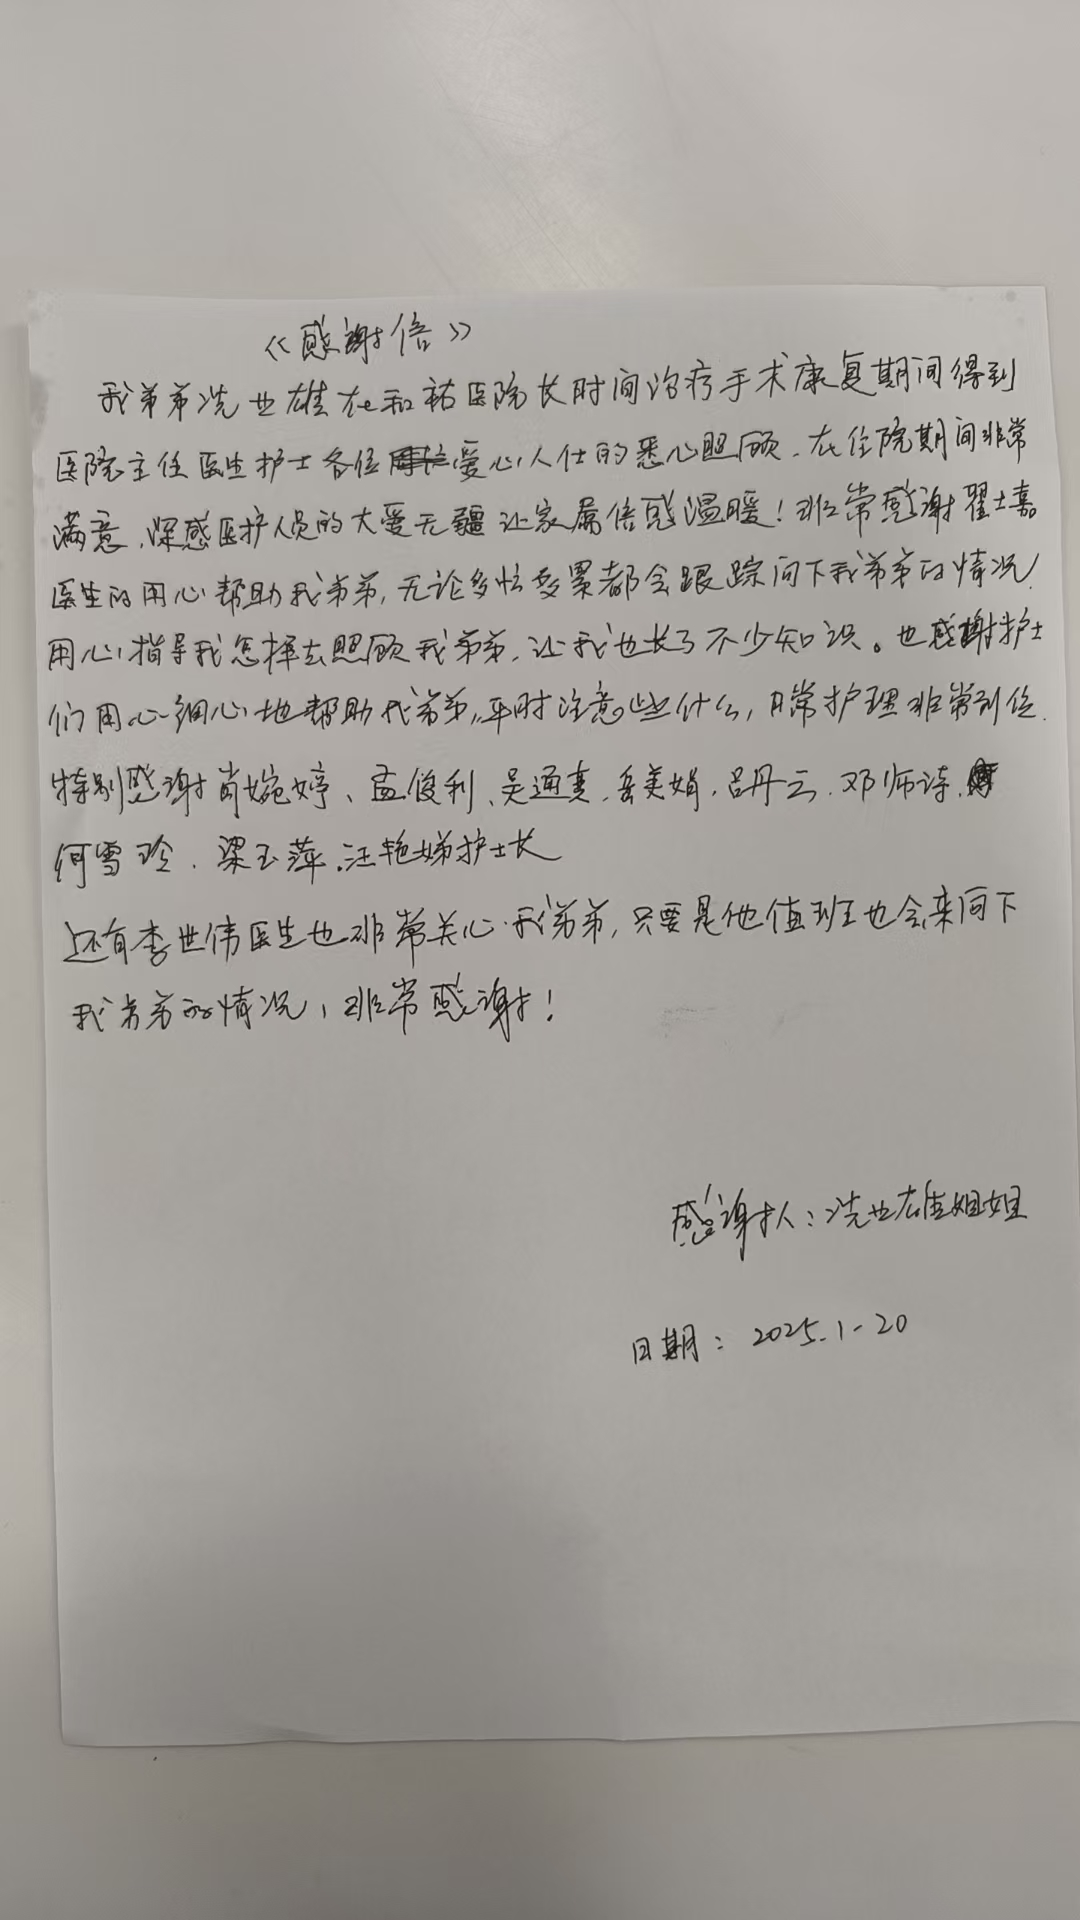 《感谢信》
我弟弟冼世雄在和祐医院长时间治疗手术康复期间得到
医院主任医生护士各位爱心人仕的悉心照顾，在住院期间非常
满意，深感医护人员的大爱无疆让家属倍感温暖！非常感谢翟士嘉
医生的用心帮助我弟弟，无论多忙多累都会跟踪问下我弟弟的情况，
用心指导我怎样去照顾我弟弟，让我也长了不少知识。也感谢护士
们用心细心地帮助我弟弟，平时注意些什么，日常护理非常到位.
特别感谢肖婉婷、孟俊利、吴通、岳美娟，吕丹云，邓师诗，
何雪玲，梁玉萍，汪艳娣护士长
还有李世伟医生也非常关心我弟弟，只要是他值班也会来问下
我弟弟的情况，非常感谢！
感谢人：冼世雄姐姐
日期：2025.1-20